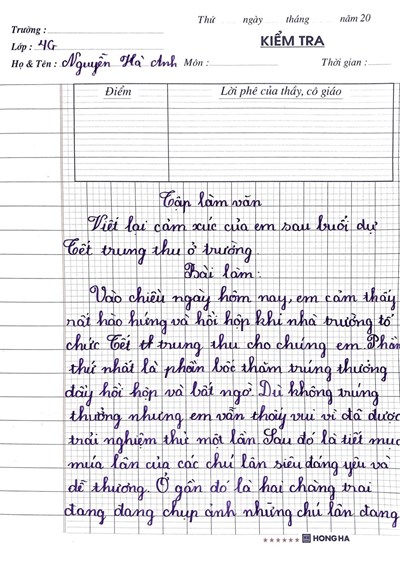 Thứ ngày tháng năm 20
Trường :
Lớp : 4G
KIỂM TRA
Họ & Tên : Nguyễn Hà Anh Môn : Thời gian :
Điểm Lời phê của thầy, cô giáo
Tập làm văn
Viết lại cảm xúc của em sau buổi dự
Tết trung thu ở trường.
Bài làm:
Vào chiều ngày hôm nay, em cảm thấy
rất hào hứng và hồi hộp khi nhà trường tổ
chức Tết tr trung thu cho chúng em. Phần
thứ nhất là phần bốc thăm trúng thưởng
đầy hồi hộp và bất ngờ. Dù không trúng
thưởng nhưng em vẫn thấy vui vì đã được
trải nghiệm thử một lần. Sau đó là tiết mục
múa lân của các chú lân siêu đáng yêu và
dễ thương. Ở gần đó là hai chàng trai
đang đang chụp ảnh những chú lân đang
HONG HA